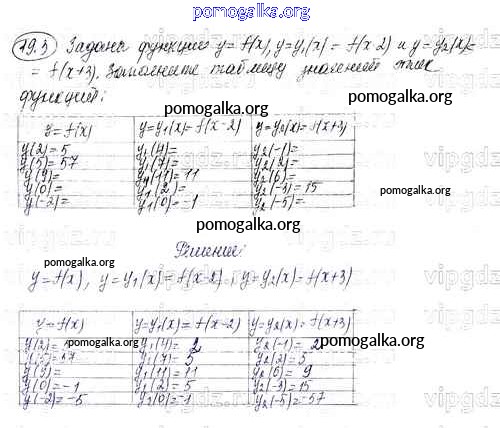 pomogalka.org
19.3 Задана функция y = f(x), y = y₁(x) = f(x-2) и y = y₂(x) =
= f(x+3). Заполните таблицу значений этих
функций:
pomogalka.org
y = f(x) y=y₁(x)=f(x-2) y=y₂(x)=f(x+3)
y(2)=5 y₁(4)= y₂(-1)=
y(5)=57 y₁(7)= y₂(2)=
y(9)= y₁(11)=11 y₂(6)=
y(0)= y₁(2)= y₂(-3)=15
y(-2)= y₁(0)=-1 y₂(-5)=
pomogalka.org
pomogalka.org
pomogalka.org
Решение:
y=f(x), y=y₁(x)=f(x-2), y=y₂(x)=f(x+3)
pomogalka.org
pomogalka.org
y=f(x) y=y₁(x)=f(x-2) y=y₂(x)=f(x+3)
y(2)= y₁(4)=2 y₂(-1)=2
y(5)=57 y₁(7)=5 y₂(2)=5
y(9)= y₁(11)=11 y₂(6)=9
y(0)=-1 y₁(2)=5 y₂(-3)=15
y(-2)=-5 y₂(0)=-1 y₂(-5)=-57
pomogalka.org
pomogalka.org
vipgdz.ru